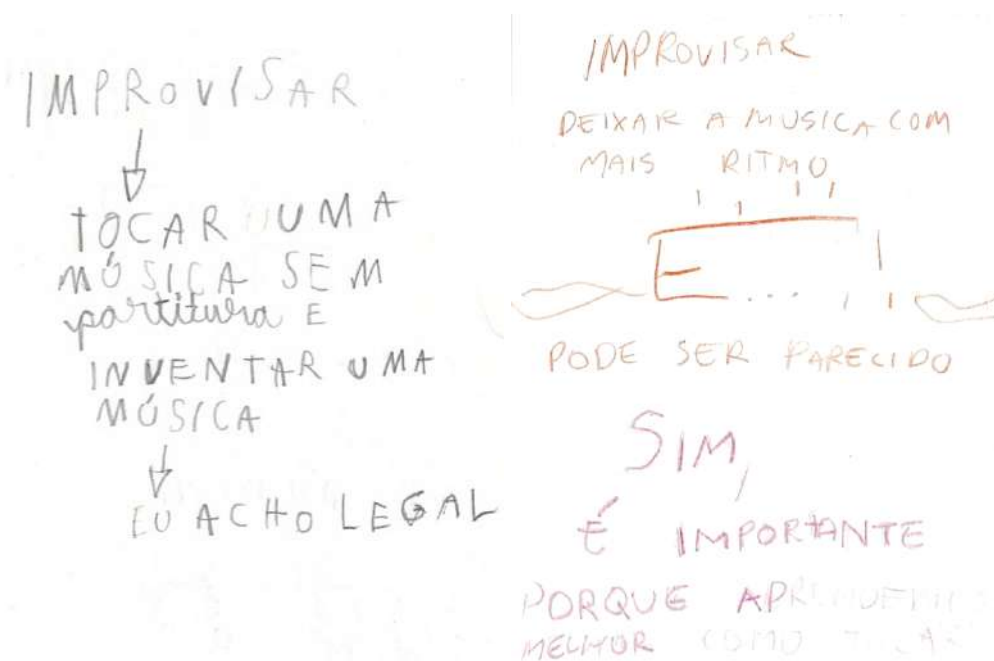 IMPROVISAR
TOCAR UMA
MÚSICA SEM
partitura E
INVENTAR UMA
MÚSICA
EU ACHO LEGAL
IMPROVISAR
DEIXAR A MUSICA COM
MAIS RITMO
E
...
PODE SER PARECIDO
SIM,
É IMPORTANTE
PORQUE APRENDEMOS
MELHOR COMO